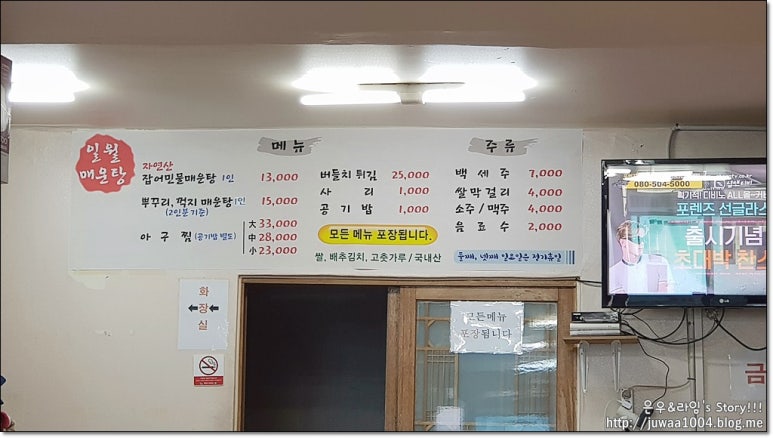 일월
매운탕
메뉴
자연산
잡어민물매운탕 1인 13,000
뿌꾸리, 꺽지 매운탕 1인 15,000
(2인분기준)
아구찜 (공기밥 별도)
大 33,000
中 28,000
小 23,000
버들치 튀김 25,000
사리 1,000
공기밥 1,000
모든 메뉴 포장됩니다.
쌀, 배추김치, 고춧가루 / 국내산
주류
백세주 7,000
쌀막걸리 4,000
소주/맥주 4,000
음료수 2,000
둘째, 넷째 일요일은 정기휴일
화장실
모든메뉴
포장됩니다
080-504-5000
포렌즈 선글라스
출시기념
초대박 찬스
LG
금
은우&라임's Story!!!
http://juwaa1004.blog.me